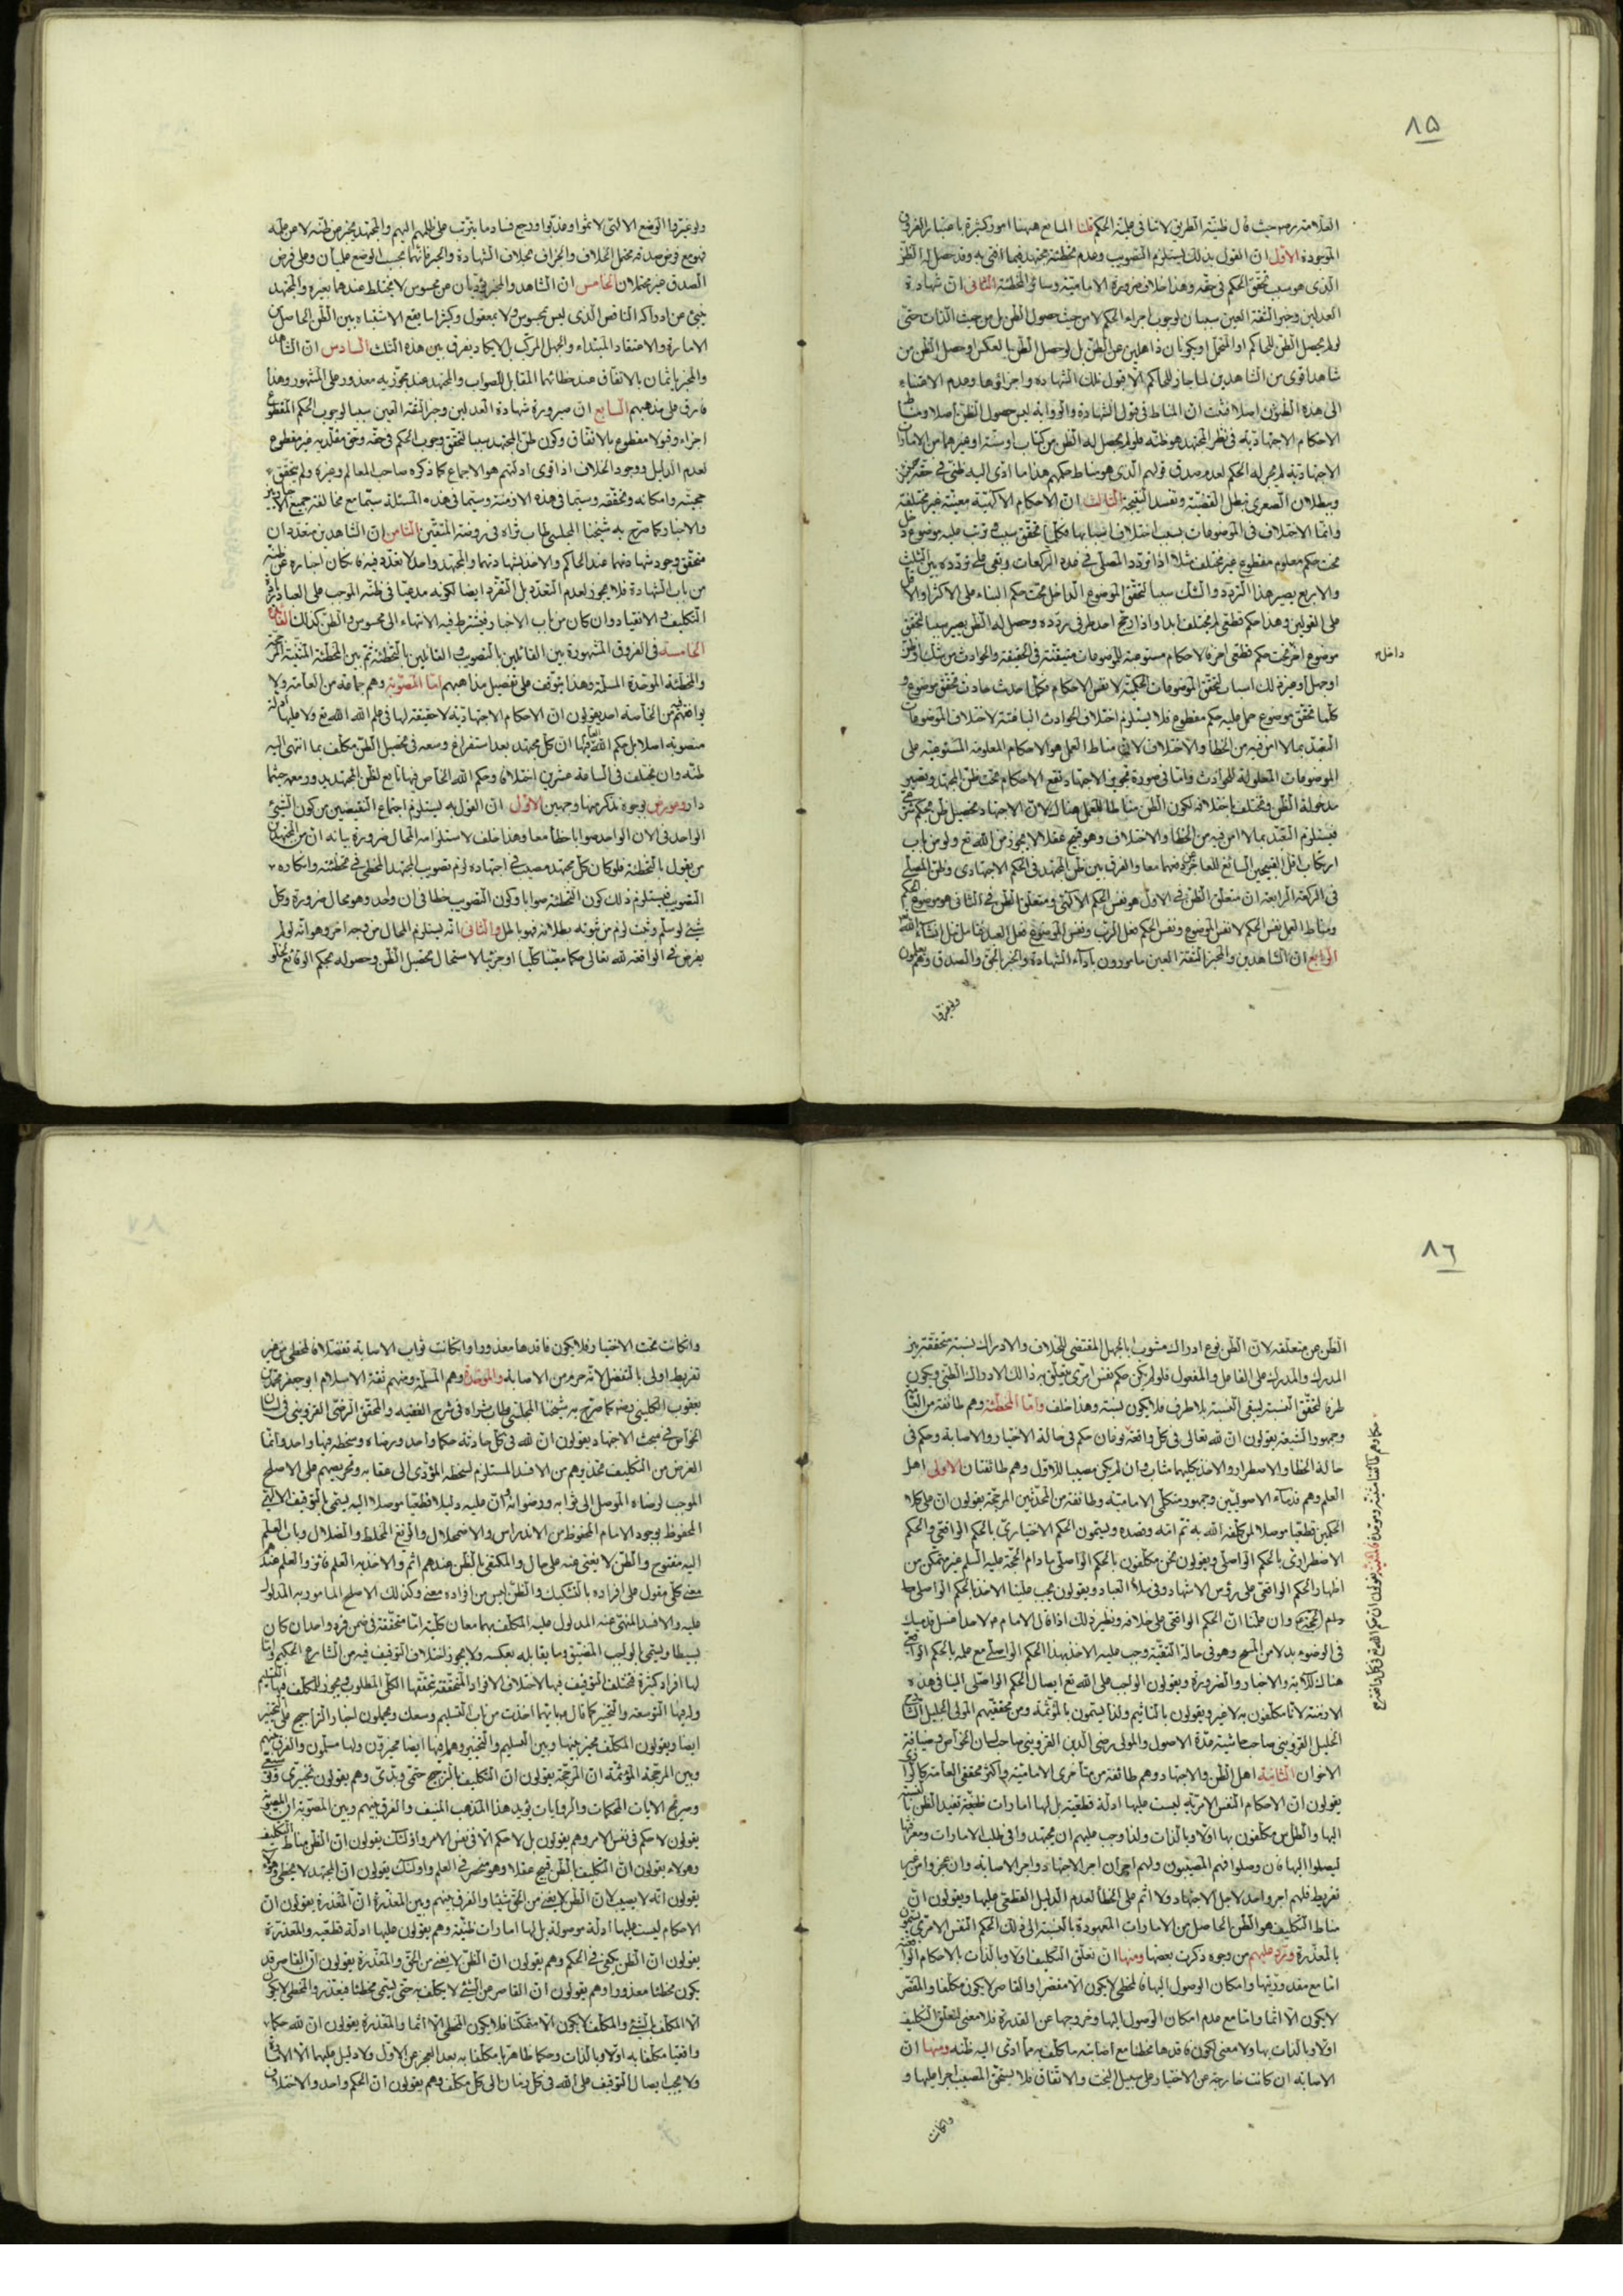 ٨٥
العلامة ره حيث قال ظنية الطريق لا تنافى علمية الحكم قلنا المانع ههنا امور كثيرة باعتبار الفرق
الموجودة الاول ان القول بذلك يستلزم التصويب وعدم تخطئة مجتهد فيما افتى به وقد حصل له الظن
الذى هو سبب تحقق الحكم فى حقه وهذا خلاف ضرورة الامامية وسائر المخطئة الثانى ان شهادة
العدلين وخبر الثقة العين سببان لوجوب اجراء الحكم لا من حيث حصول الظن بل من حيث الذات حتى
لو لم يحصل الظن للحاكم او المتحمل او يكونان ذاهلين عن الظن بل لو حصل الظن بالعكس او حصل الظن من
شاهد اقوى من الشاهدين لما جاز للحاكم الا قبول تلك الشهادة واجراؤها وعدم الاعتناء
الى هذه الظنون اصلا فثبت ان المناط فى قبول الشهادة والرواية ليس حصول الظن اصلا ومناط
الاحكام الاجتهادية فى نظر المجتهد هو ظنه فلو لم يحصل له الظن من كتاب او سنة او غيرهما من الامارات
الاجتهادية لم يجز له الحكم لعدم صدق قولهم الذى هو مناط حكمهم هذا ما ادى اليه ظنى فى حقه
وببطلان الصغرى تبطل القضية وتفسد النتيجة الثالث ان الاحكام الالهية معينة غير مختلفة
وانما الاختلاف فى الموضوعات بسبب اختلاف اسبابها فكلما تحقق سبب ترتب عليه موضوع دخل
تحت حكم معلوم مقطوع غير مختلف مثلا اذا تردد المصلى فى عدد الركعات وبقى على تردده بين الثلث
والاربع يصير هذا التردد والشك سببا لتحقق الموضوع الداخل تحت حكم البناء على الاكثر او الاقل
على القولين وهذا حكم قطعى لم يختلف ابدا واذا ترجح احد طرفى تردده وحصل له الظن يصير سببا لتحقق
موضوع اخر تحت حكم قطعى اخر فالاحكام مستوعبة للموضوعات متيقنة فى الحقيقة والحوادث من شك او ظن
داخل
او جهل او غير ذلك اسباب لتحقق الموضوعات الحكمية لا نفس الاحكام فكل احدث حادث تحقق موضوع و
كلما تحقق موضوع حمل عليه حكم مقطوع فلا يستلزم اختلاف الحوادث الباعثة لاختلاف الموضوعات
التعبد بما لا امن فيه من الخطا والاختلاف لان مناط العمل هو الاحكام المعلومة المستوعبة على
الموضوعات المعلولة للحوادث واما فى صورة تجويز الاجتهاد تقع الاحكام تحت ظن المجتهد وتصير
مدخولة الظن وتختلف باختلافه لكون الظن مناطا للعمل هناك لان الاجتهاد تحصيل ظن بحكم شرعى
فيستلزم التعبد بما لا امن فيه من الخطا والاختلاف وهو قبيح عقلا لا يجوز من الله تع ولو من باب
ارتكاب اقل القبيحين السائغ للعاجز عن رفعهما معا والفرق بين ظن المجتهد فى الحكم الاجتهادى وظن المصلى
فى الركعة الرابعة ان متعلق الظن فى الاول هو نفس الحكم الالهى ومتعلق الظن فى الثانى هو موضوع الحكم
ومناط العمل نفس الحكم لا نفس الموضوع ونفس الحكم فعل الرب ونفس الموضوع فعل العبد
الرابع ان الشاهدين والمخبر الثقة العين مامورون باداء الشهادة والخبر الحق والصدق وهم
ولو غيرها الوضع الالهى لاثموا وعذبوا ورجع فساد ما يترتب على ظلمهم اليهم والمجتهد يخبر عن ظنه لا عن علمه
فهو مع فرض صدقه محتمل الخلاف والجزاف بخلاف الشهادة والخبر فانهما بحسب الوضع علميان وعلى فرض
الصدق غير محتملان الخامس ان الشاهد والمخبر يؤديان عن محسوس لا يختلط عندهما بغيره والمجتهد
يخبر عن ادراكه الناقص الذى ليس بمحسوس ولا بمعقول وكثيرا ما يقع الاشتباه بين الظن الحاصل من
الامارة والاعتقاد المبتداء والجهل المركب بل لا يكاد يفرق بين هذه الثلث السادس ان الشاهد
والمخبر ياثمان بالاتفاق عند خطائهما المقابل للصواب والمجتهد عند مجوزيه معذور على المشهور وهذا
فارق على مذهبهم السابع ان صيرورة شهادة العدلين وخبر الثقة العين سببا لوجوب الحكم المقطوع
اجراء وقبولا مقطوع بالاتفاق وكون ظن المجتهد سببا لتحقق وجوب الحكم فى حقه وحق مقلديه غير مقطوع
لعدم الدليل ووجود الخلاف اذ اقوى ادلتهم هو الاجماع كما ذكره صاحب المعالم وغيره ولم يتحقق
حجيته وامكانه وتحققه وسيما فى هذه الازمنة وسيما فى هذه المسئلة سيما مع مخالفة جميع الاخباريين
والاخبار كما صرح به شيخنا المجلسى طاب ثراه فى روضة المتقين الثامن ان الشاهدين متعددان
متحقق وجود شهادتهما عند الحاكم والاخذ بشهادتهما والمجتهد واحد لا تعدد فيه فان كان اخباره عن ظنه
من باب الشهادة فلا يجوز لعدم التعدد بل التفرد ايضا لكونه مدعيا فى ظنه الموجب على العباد
التكليف والانقياد وان كان من باب الاخبار فيشترط فيه الانتهاء الى محسوس والظن كذلك الفائدة
الخامسة فى الفروق المشهورة بين القائلين بالتصويب والقائلين بالتخطئة ثم بين المخطئة
والمخطئة الموحدة المسلمة وهذا يتوقف على تفصيل مذاهبهم اما المصوبة وهم جماعة من العامة ولا
يوافقهم من الخاصة احد يقولون ان الاحكام الاجتهادية لا حقيقة لها فى علم الله تع ولا عليها ادلة
منصوبة اصلا بل حكم الله فيها ان كل مجتهد بعد استفراغ وسعه فى تحصيل الظن مكلف بما انتهى اليه
ظنه وان يختلف فى الساعة عشرين اختلافا وحكم الله الخاص فيها تابع لظن المجتهد يدور معه حيثما
دار وعورض بوجوه نذكر منها وجهين الاول ان القول به يستلزم اجتماع النقيضين من كون الشىء
الواحد فى الان الواحد صوابا خطأ معا وهذا خلف لاستلزامه المحال ضرورة بيانه ان من المجتهدين
من يقول بالتخطئة فلو كان كل مجتهد مصيب فى اجتهاده لزم تصويب المجتهد المخطى فى تخطئته وانكاره
التصويب فيستلزم ذلك كون التخطئة صوابا وكون التصويب خطا فى ان واحد وهو محال ضرورة وكل
شىء لو سلم وثبت لزم من ثبوته بطلانه فهو باطل والثانى انه يستلزم المحال من وجه اخر وهو انه لو لم
يفرض فى الواقعة لله تعالى حكما معينا كليا او جزئيا لاستحال تحصيل الظن وحصوله بحكم الواقع لخلو
ولو غيرها
٨٦
الظن عن متعلقه لان الظن نوع ادراك مشوب بالجهل المقتضى للخلاف والادراك نسبة متحققة بين
المدرك والمدرك على الفاعل والمفعول فلو لم يكن حكم نفس امرى يتعلق به ذالك الادراك الظنى ويكون
طرفا لتحقق النسبة لبقى النسبة بلا طرف فلا يكون نسبة وهذا خلف واما المخطئة وهم طائفة من العامة
وجمهور الشيعة يقولون ان لله تعالى فى كل واقعة نوعان حكم فى حالة الاختيار والاصابة وحكم فى
حالة الخطا والاضطرار والاخذ بكليهما مثاب وان لم يكن مصيبا للاول وهم طائفتان الاولى اهل
العلم وهم قدماء الاصوليين وجمهور متكلمى الامامية وطائفة من المحدثين المرجحة يقولون ان على كلا
الحكمين قطعيا موصلا لمن كلفه الله به ثم امه وقصده ويسمون الحكم الاختيارى بالحكم الواقعى والحكم
الاضطرارى بالحكم الواصلى ويقولون نحن مكلفون بالحكم الواصلى مادام الحجة عليه السلم غير متمكن من
اظهار الحكم الواقعى على رؤس الاشهاد وفى ملأ العباد ويقولون يجب علينا الاخذ بالحكم الواصلى
وان علمنا ان الحكم الواقعى على خلافه ونظير ذلك اذا قال الامام ع لاحد اغسل قدميك
فى الوضوء بدلا من المسح وهو فى حالة التقية وجب عليه الاخذ بهذا الحكم الواصلى مع علمه بالحكم الواقعى
هناك للآية والاخبار والضرورة ويقولون الواجب على الله تع ايصال الحكم الواصلى الينا فى هذه
الازمنة لانا مكلفون به لا غير ويقولون بالتاثيم ولذا يسمون بالمؤثمة ومن محققيهم المولى الجليل
الخليل القزوينى صاحب حاشية عدة الاصول والمولى رضى الدين القزوينى صاحب لسان الخواص وضيافة
الاخوان الثانية اهل الظن والاجتهاد وهم طائفة من متأخرى الامامية واكثر محققى العامة كالرازى
يقولون ان الاحكام النفس الامرية ليست عليها ادلة قطعية بل لها امارات ظنية تفيد الظن بالنسبة
اليها والظانون مكلفون بها اولا وبالذات ولذا وجب عليهم ان يجتهدوا فى طلب الامارات ومعرفتها
ليصلوا اليها فان وصلوا فهم المصيبون ولهم اجران اجر الاجتهاد واجر الاصابة وان عجزوا من غير
تفريط فلهم اجر واحد لاجل الاجتهاد ولا اثم على الخطأ لعدم الدليل القطعى عليها ويقولون ان
مناط التكليف هو الظن الحاصل من الامارات المعهودة بالنسبة الى ذلك الحكم النفس الامرى
بالمعذرة ويرد عليهم من وجوه ذكرت بعضها ومنها ان تعلق التكليف اولا وبالذات بالاحكام الواقعية
اما مع مقدوريتها وامكان الوصول اليها فالمخطى لا يكون الا مقصرا والقاصر لا يكون مكلفا والمقصر
لا يكون الا اثما واما مع عدم امكان الوصول اليها وخروجها عن القدرة فلا معنى لتعلق التكليف
اولا وبالذات بها ولا معنى لكون فاقدها مخطئا مع اصابته ما كلف به مما ادى اليه ظنه ومنها ان
الاصابة ان كانت خارجة عن الاختيار على سبيل البخت والاتفاق فلا يستحق المصيب اجرا عليها و
وانكانت
وانكانت تحت الاختيار فلا يكون فاقدها معذورا وانكانت ثواب الاصابة تفضلا فالمخطى من غير
تفريط اولى بالتفضل لانه حرم من الاصابة والموحدة وهم المسلمة ومنهم ثقة الاسلام ابو جعفر محمد بن
يعقوب الكلينى رضه كما صرح به شيخنا المجلسى طاب ثراه فى شرح الفقيه والمحقق الرضى القزوينى فى لسان
الخواص فى مبحث الاجتهاد يقولون ان لله فى كل حادثة حكما واحد ورضاه وسخطه فيها واحد وانما
الغرض من التكليف تحذيرهم من الافسد المستلزم لسخطه المؤدى الى عقابه وتحريضهم على الاصلح
الموجب لرضاه الموصل الى ثوابه ورضوانه وان عليه دليلا قطعيا موصلا اليه يسمى بالتوقيف الالهى
المحفوظ بوجود الامام المحفوظ من الاندراس والاضمحلال والزيغ المخلط والضلال وباب العلم
اليه مفتوح والظن لا يغنى عنه على حال والمكتفى بالظن عندهم اثم والاخذ به العلم فائز والعلم عندهم
معنى كلى مقول على افراده بالتشكيك والظن ليس من افراده معنى وكذلك الاصلح المامور به المدلول
عليه والافسد المنهى عنه المدلول عليه المكلف بهما معان كلية اما متحققة فى ضمن فرد واحد ان كان
بسيطا ويسمى الواجب المضيق وما يقابله بعكسه ولا يجوز اختلاف التوقيف فيه من الشارع الحكيم واما
لها افراد كثيرة فتختلف التوقيف فيها لاختلاف الافراد المتحققة بتحققها الكلى المطلوب ويجوز للمكلف فيها التسليم
ولديها التوسعة والتخيير كما قال ع بايهما اخذت من باب التسليم وسعك ويحملون اخبار التراجيح على التخيير
ايضا ويقولون المكلف مخير بينها وبين التسليم والتخيير وهم فيها ايضا مخيرون ولها مسلمون والفرق بينهم
وبين المرجحة المؤثمة ان المرجحة يقولون ان التكليف بالترجيح حتمى وبدى وهم يقولون تخييرى وتوسعى
وصريح الايات المحكمات والروايات يؤيد هذا المذهب المنيف والفرق بينهم وبين المصوبة ان المصوبة
يقولون لا حكم فى نفس الامر وهم يقولون بل لا حكم الا فى نفس الامر واولئك يقولون ان الظن مناط التكليف
وهولاء يقولون ان التكليف بالظن قبيح عقلا وهو منحصر فى العلم واولئك يقولون ان المجتهد لا يخطى وهولاء
يقولون انه لا يصيب لان الظن لا يغنى من الحق شيئا والفرق بينهم وبين المعذرة ان المعذرة يقولون ان
الاحكام ليست عليها ادلة موصولة بل لها امارات ظنية وهم يقولون عليها ادلة قطعية والمعذرة
يقولون ان الظن يكفى فى الحكم وهم يقولون ان الظن لا يغنى من الحق والمعذرة يقولون ان القاصر قد
يكون مخطئا معذورا وهم يقولون ان القاصر من الشىء لا يكلف به حتى يسمى مخطئا فيعذر والمخطى لا يكون
الا المكلف بالشىء والمكلف لا يكون الا متمكنا فلا يكون المخطى الا اثما والمعذرة يقولون ان لله حكما
واقعيا مكلفا به اولا وبالذات وحكما ظاهريا مكلفا به بعد العجز عن الاول ولا دليل عليهما الا الامارة
ولا يجب ايصال التوقيف على الله فى كل زمان الى كل مكلف وهم يقولون ان الحكم واحد والاختلاف